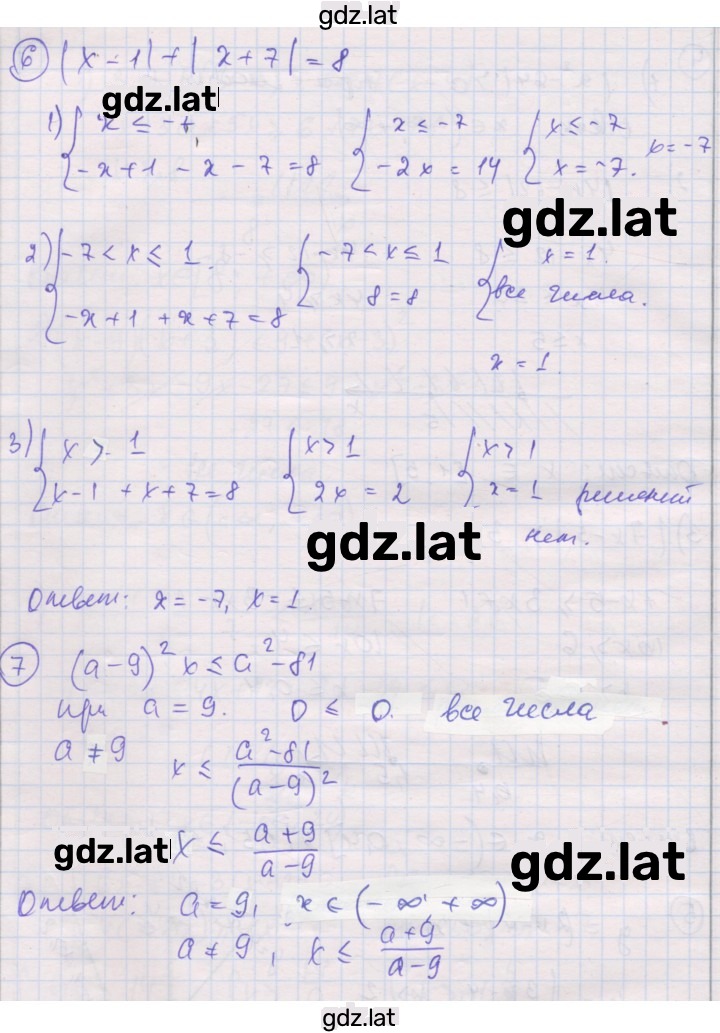 gdz.lat
⑥ |x - 1| + |x + 7| = 8
gdz.lat
1) { x ≤ -7, { x ≤ -7 { x ≤ -7 x = -7
-x + 1 - x - 7 = 8 -2x = 14 x = -7.
gdz.lat
2) { -7 < x ≤ 1. { -7 < x ≤ 1 { x = 1.
-x + 1 + x + 7 = 8 8 = 8 все числа.
x = 1.
3) { x > 1 { x > 1 { x > 1
x - 1 + x + 7 = 8 2x = 2 x = 1 решений
нет.
gdz.lat
Ответ: x = -7, x = 1.
⑦ (a - 9)² x ≤ a² - 81
при a = 9. 0 ≤ 0. все числа
a ≠ 9 x ≤ (a² - 81)/(a - 9)²
gdz.lat x ≤ (a + 9)/(a - 9)
gdz.lat
Ответ: a = 9, x ∈ (-∞, +∞)
a ≠ 9, x ≤ (a + 9)/(a - 9)
gdz.lat